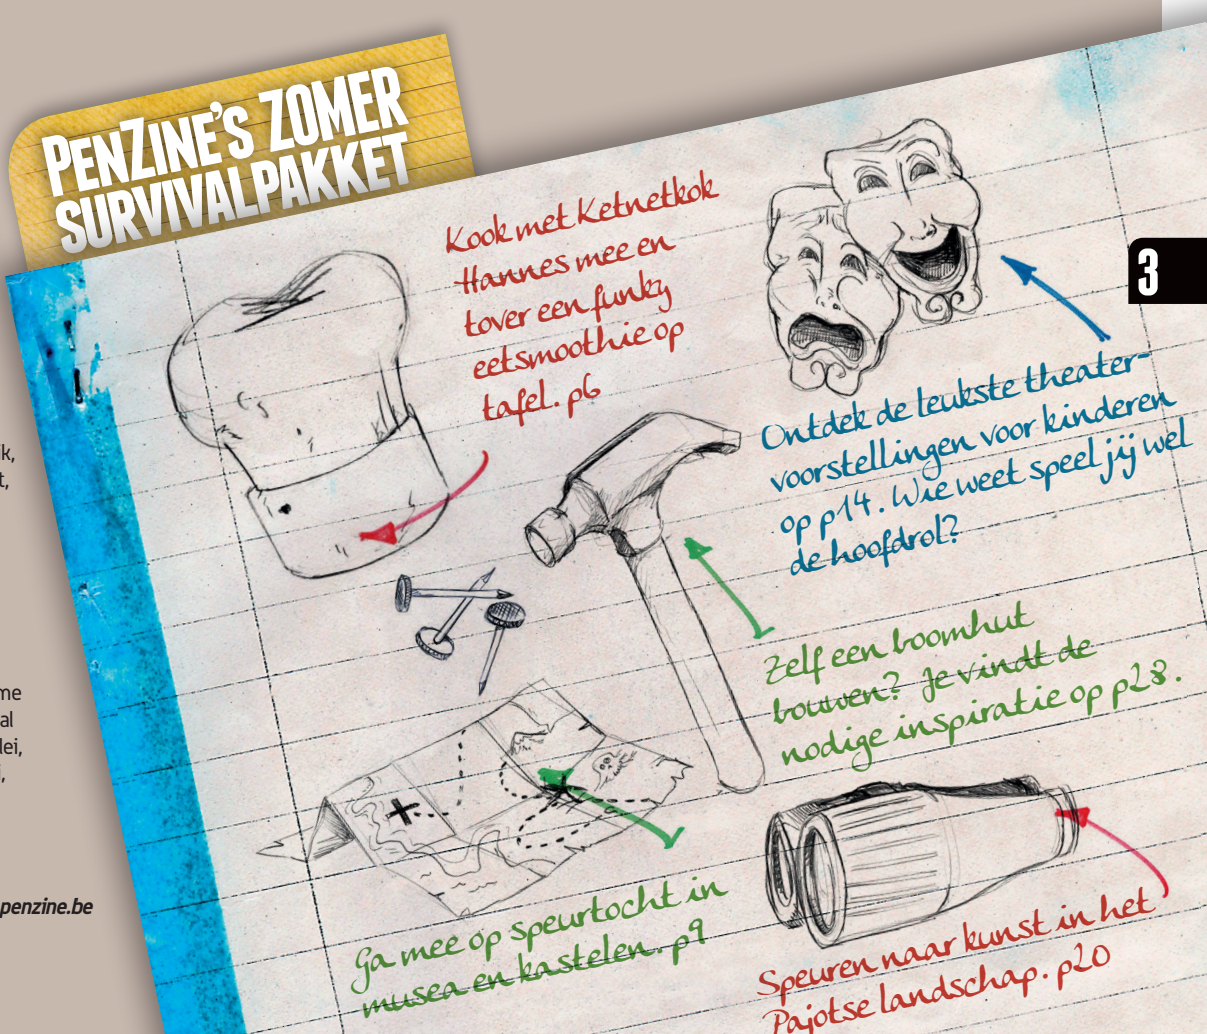 PENZINE'S ZOMER
SURVIVALPAKKET
Kook met Ketnetkok
Hannes mee en
tover een funky
eetsmoothie op
tafel. p6
3
Ontdek de leukste theater-
voorstellingen voor kinderen
op p14. Wie weet speel jij wel
de hoofdrol?
Zelf een boomhut
bouwen? Je vindt de
nodige inspiratie op p28.
Ga mee op speurtocht in
musea en kastelen. p9
Speuren naar kunst in het
Pajotse landschap. p20
penzine.be